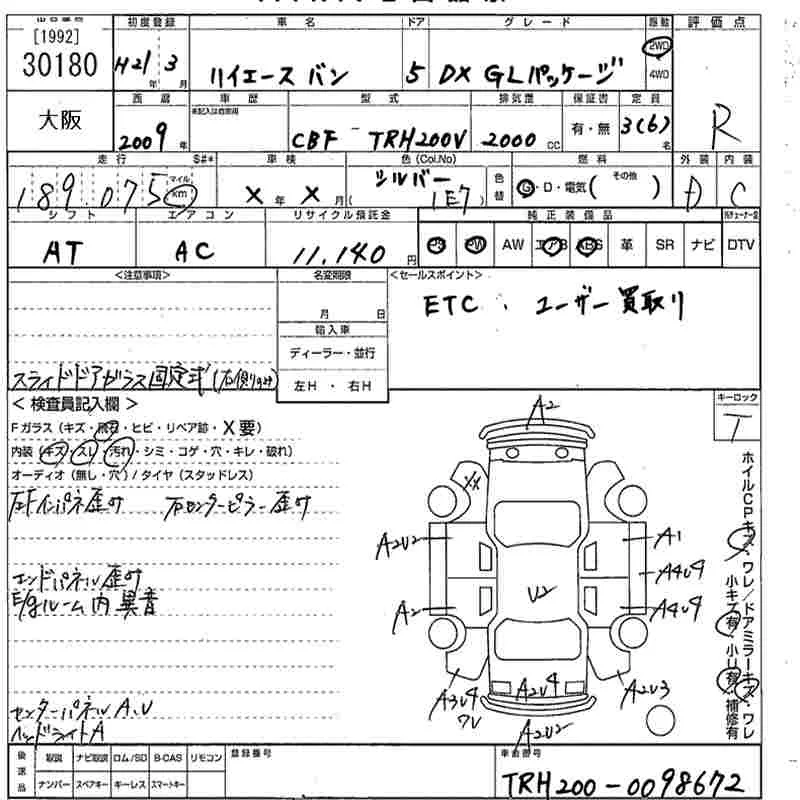 [1992]
30180
大阪
初度登録 車名 ドア グレード 原動 評価点
H21年 3月 ハイエース バン 5 DX GLパッケージ 2WD 4WD R
西暦 車歴 型式 排気量 保証書 定員
2009年 未記入は自家用 CBF TRH200V 2000cc 有・無 3(6)名
走行 S#* 車検 色(Col.No) 色替 燃料 外装 内装
189.075 マイル km X年 X月 シルバー (1E7) G・D・電気( その他 ) D C
シフト エアコン リサイクル預託金 純正装備品
AT AC 11.140円 PS PW AW エアB ABS 革 SR ナビ DTV
<注意事項> 名変期限 <セールスポイント>
月 日 ETC. ユーザー買取り
輸入車
ディーラー・並行
左H・右H
スライドドアガラス固定式
＜検査員記入欄＞ キーロック
Fガラス(キズ・飛石・ヒビ・リペア跡・X要) T
内装(キズ・スレ・汚れ・シミ・コゲ・穴・キレ・破れ)
オーディオ(無し・穴)/タイヤ(スタッドレス)
インパネ歪サ 右センターピラー歪サ
エンドパネル歪サ
E/gルーム内異音
センターパネルA,U
ヘッドライトA
A2
XX
A2U2 A1
A4U4
U2
A2 A4U4
A3U4 A2U4 A2U3
A2U2
ホイルCPキズ・ワレ/ドアミラーキズ・ワレ
小キズ有・小U有・補修有
後送品 取説 ナビ取説 ロム/SD B-CAS リモコン 登録番号 車台番号
ナンバー スペアキー キーレス スマートキー TRH200-0098672